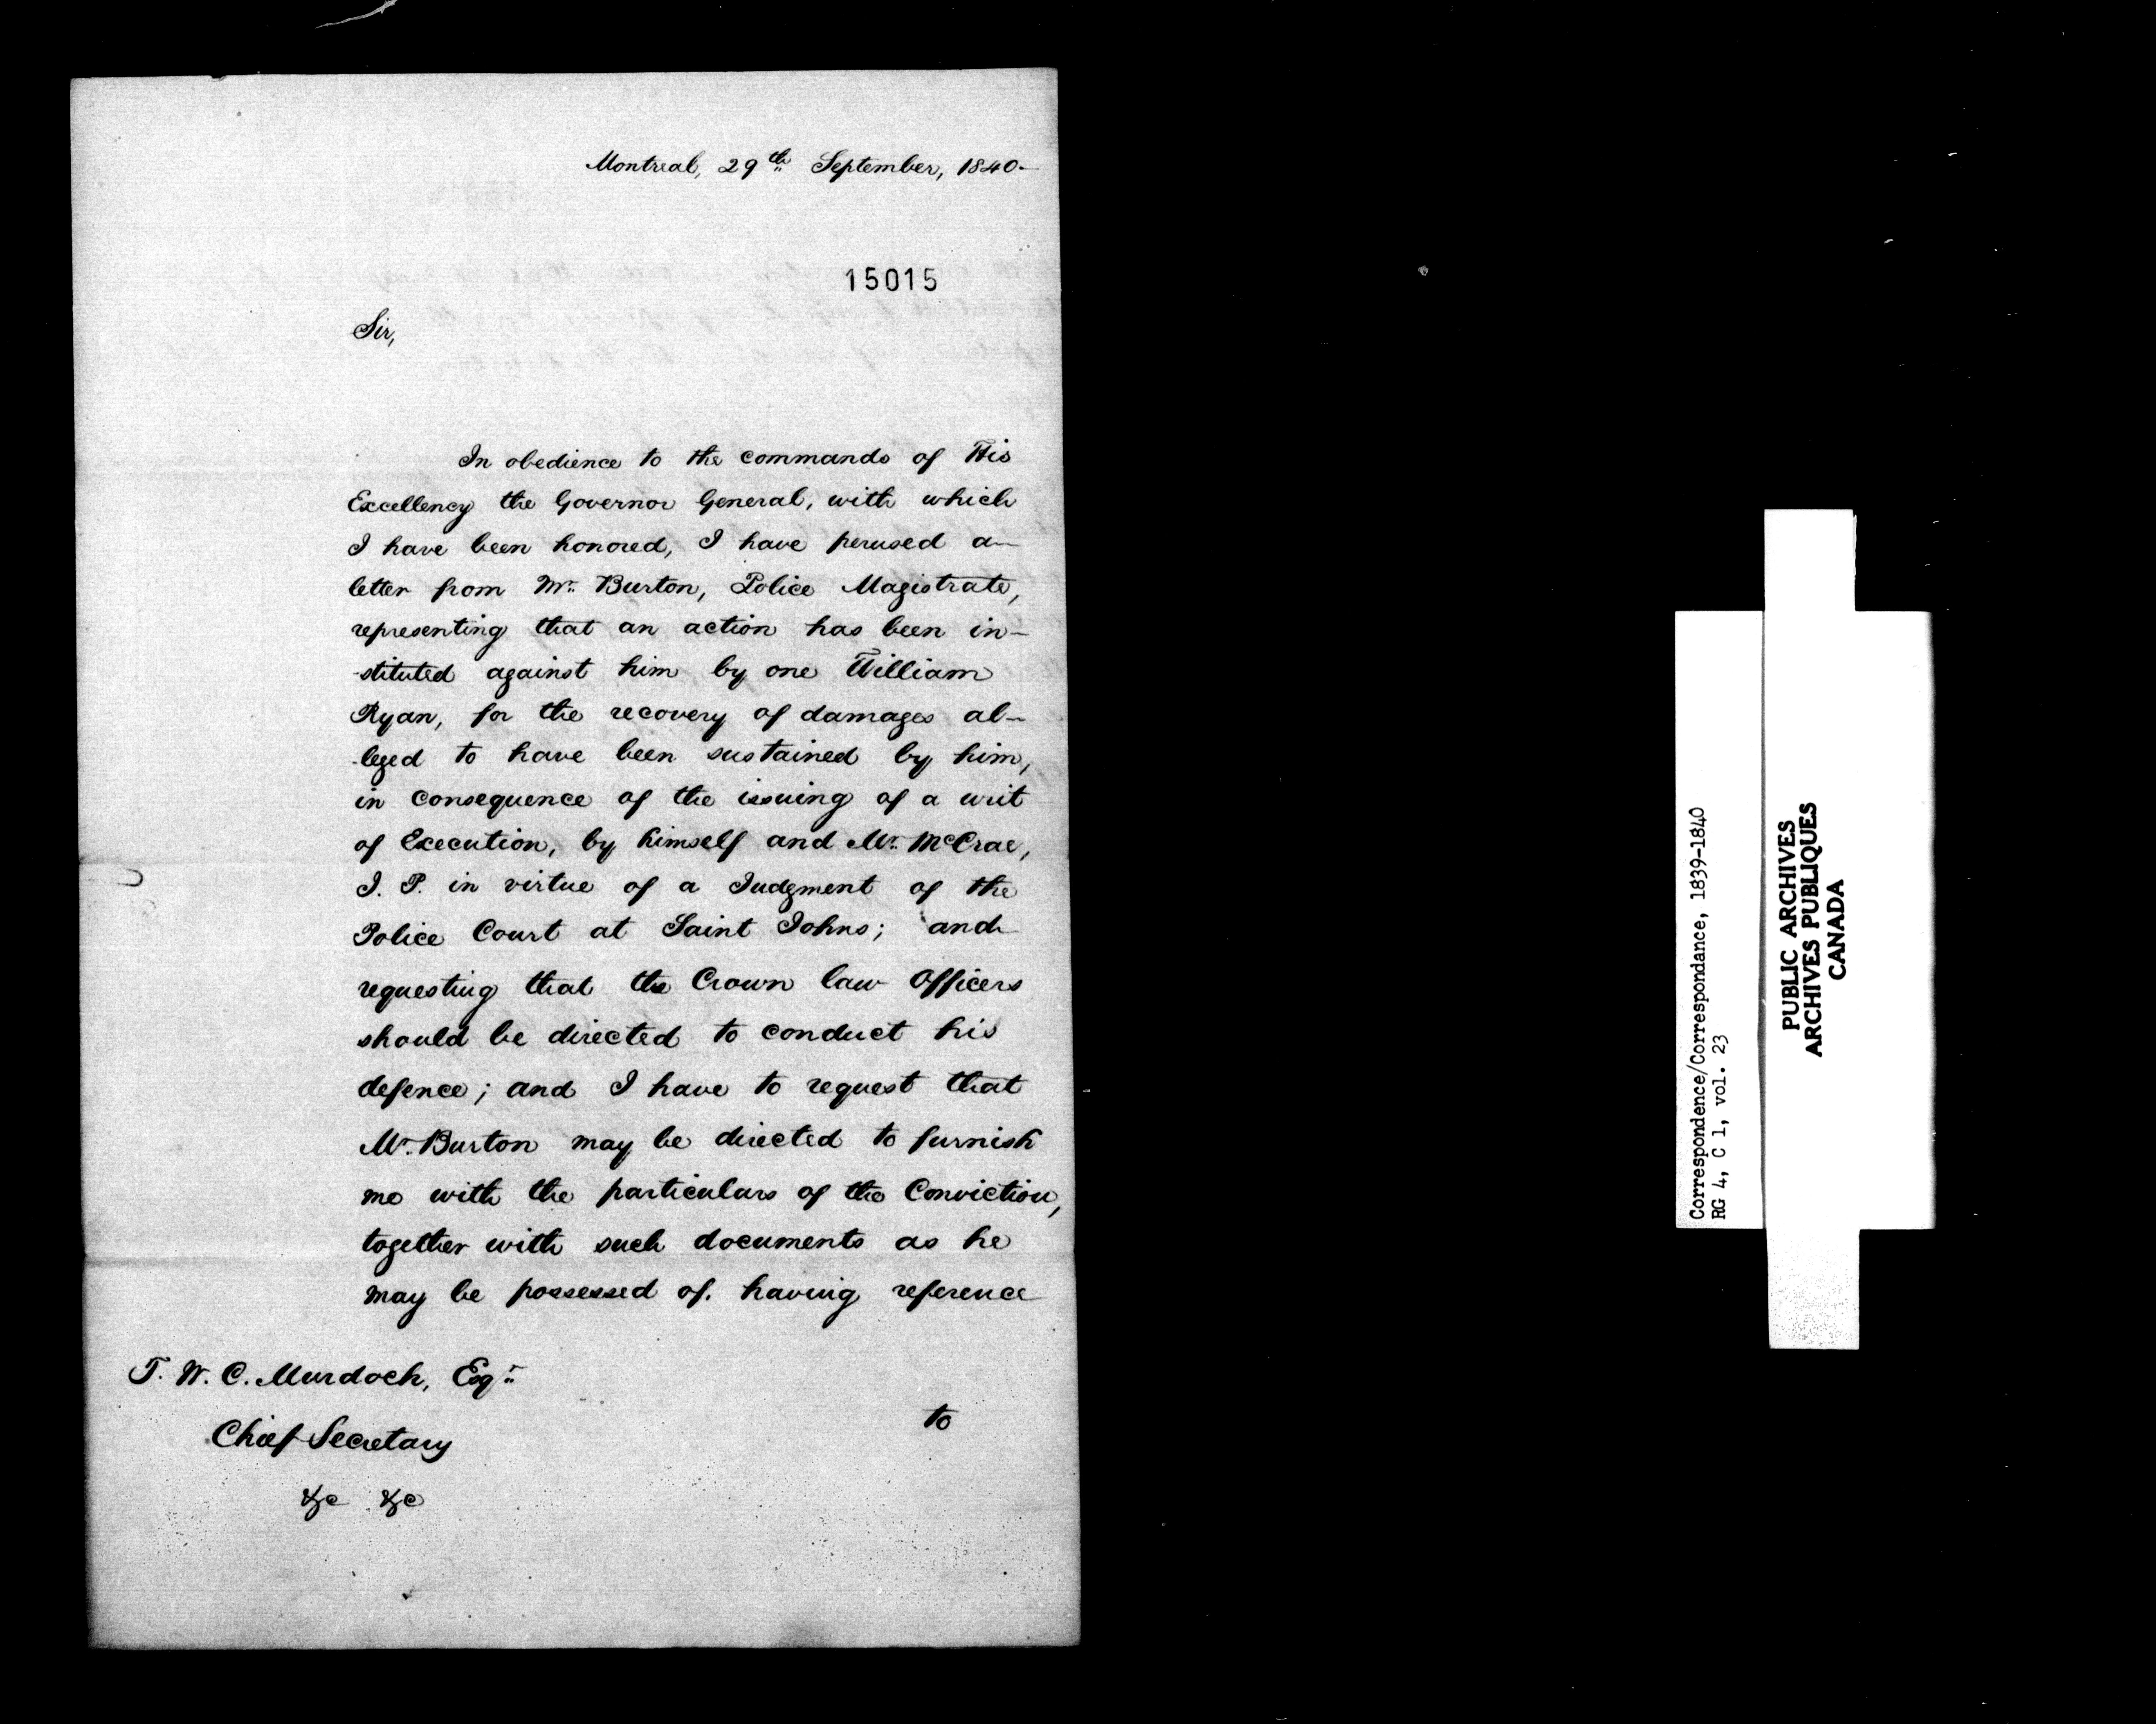 Montreal, 29th September, 1840-
15015
Sir,
In obedience to the commands of His
Excellency the Governor General, with which
I have been honored, I have perused a
letter from Mr. Burton, Police Magistrate,
representing that an action has been in-
-stituted against him by one William
Ryan, for the recovery of damages al-
-leged to have been sustained by him,
in consequence of the issuing of a writ
of Execution, by himself and Mr. McCrae,
J. P. in virtue of a Judgment of the
Police Court at Saint Johns; and
requesting that the Crown law Officers
should be directed to conduct his
defence; and I have to request that
Mr. Burton may be directed to furnish
me with the particulars of the Conviction,
together with such documents as he
may be possessed of. having reference
T. W. C. Murdoch, Esqr.
Chief Secretary
&c &c
to
Correspondence/Correspondance, 1839-1840
RG 4, C 1, vol. 23
PUBLIC ARCHIVES
ARCHIVES PUBLIQUES
CANADA